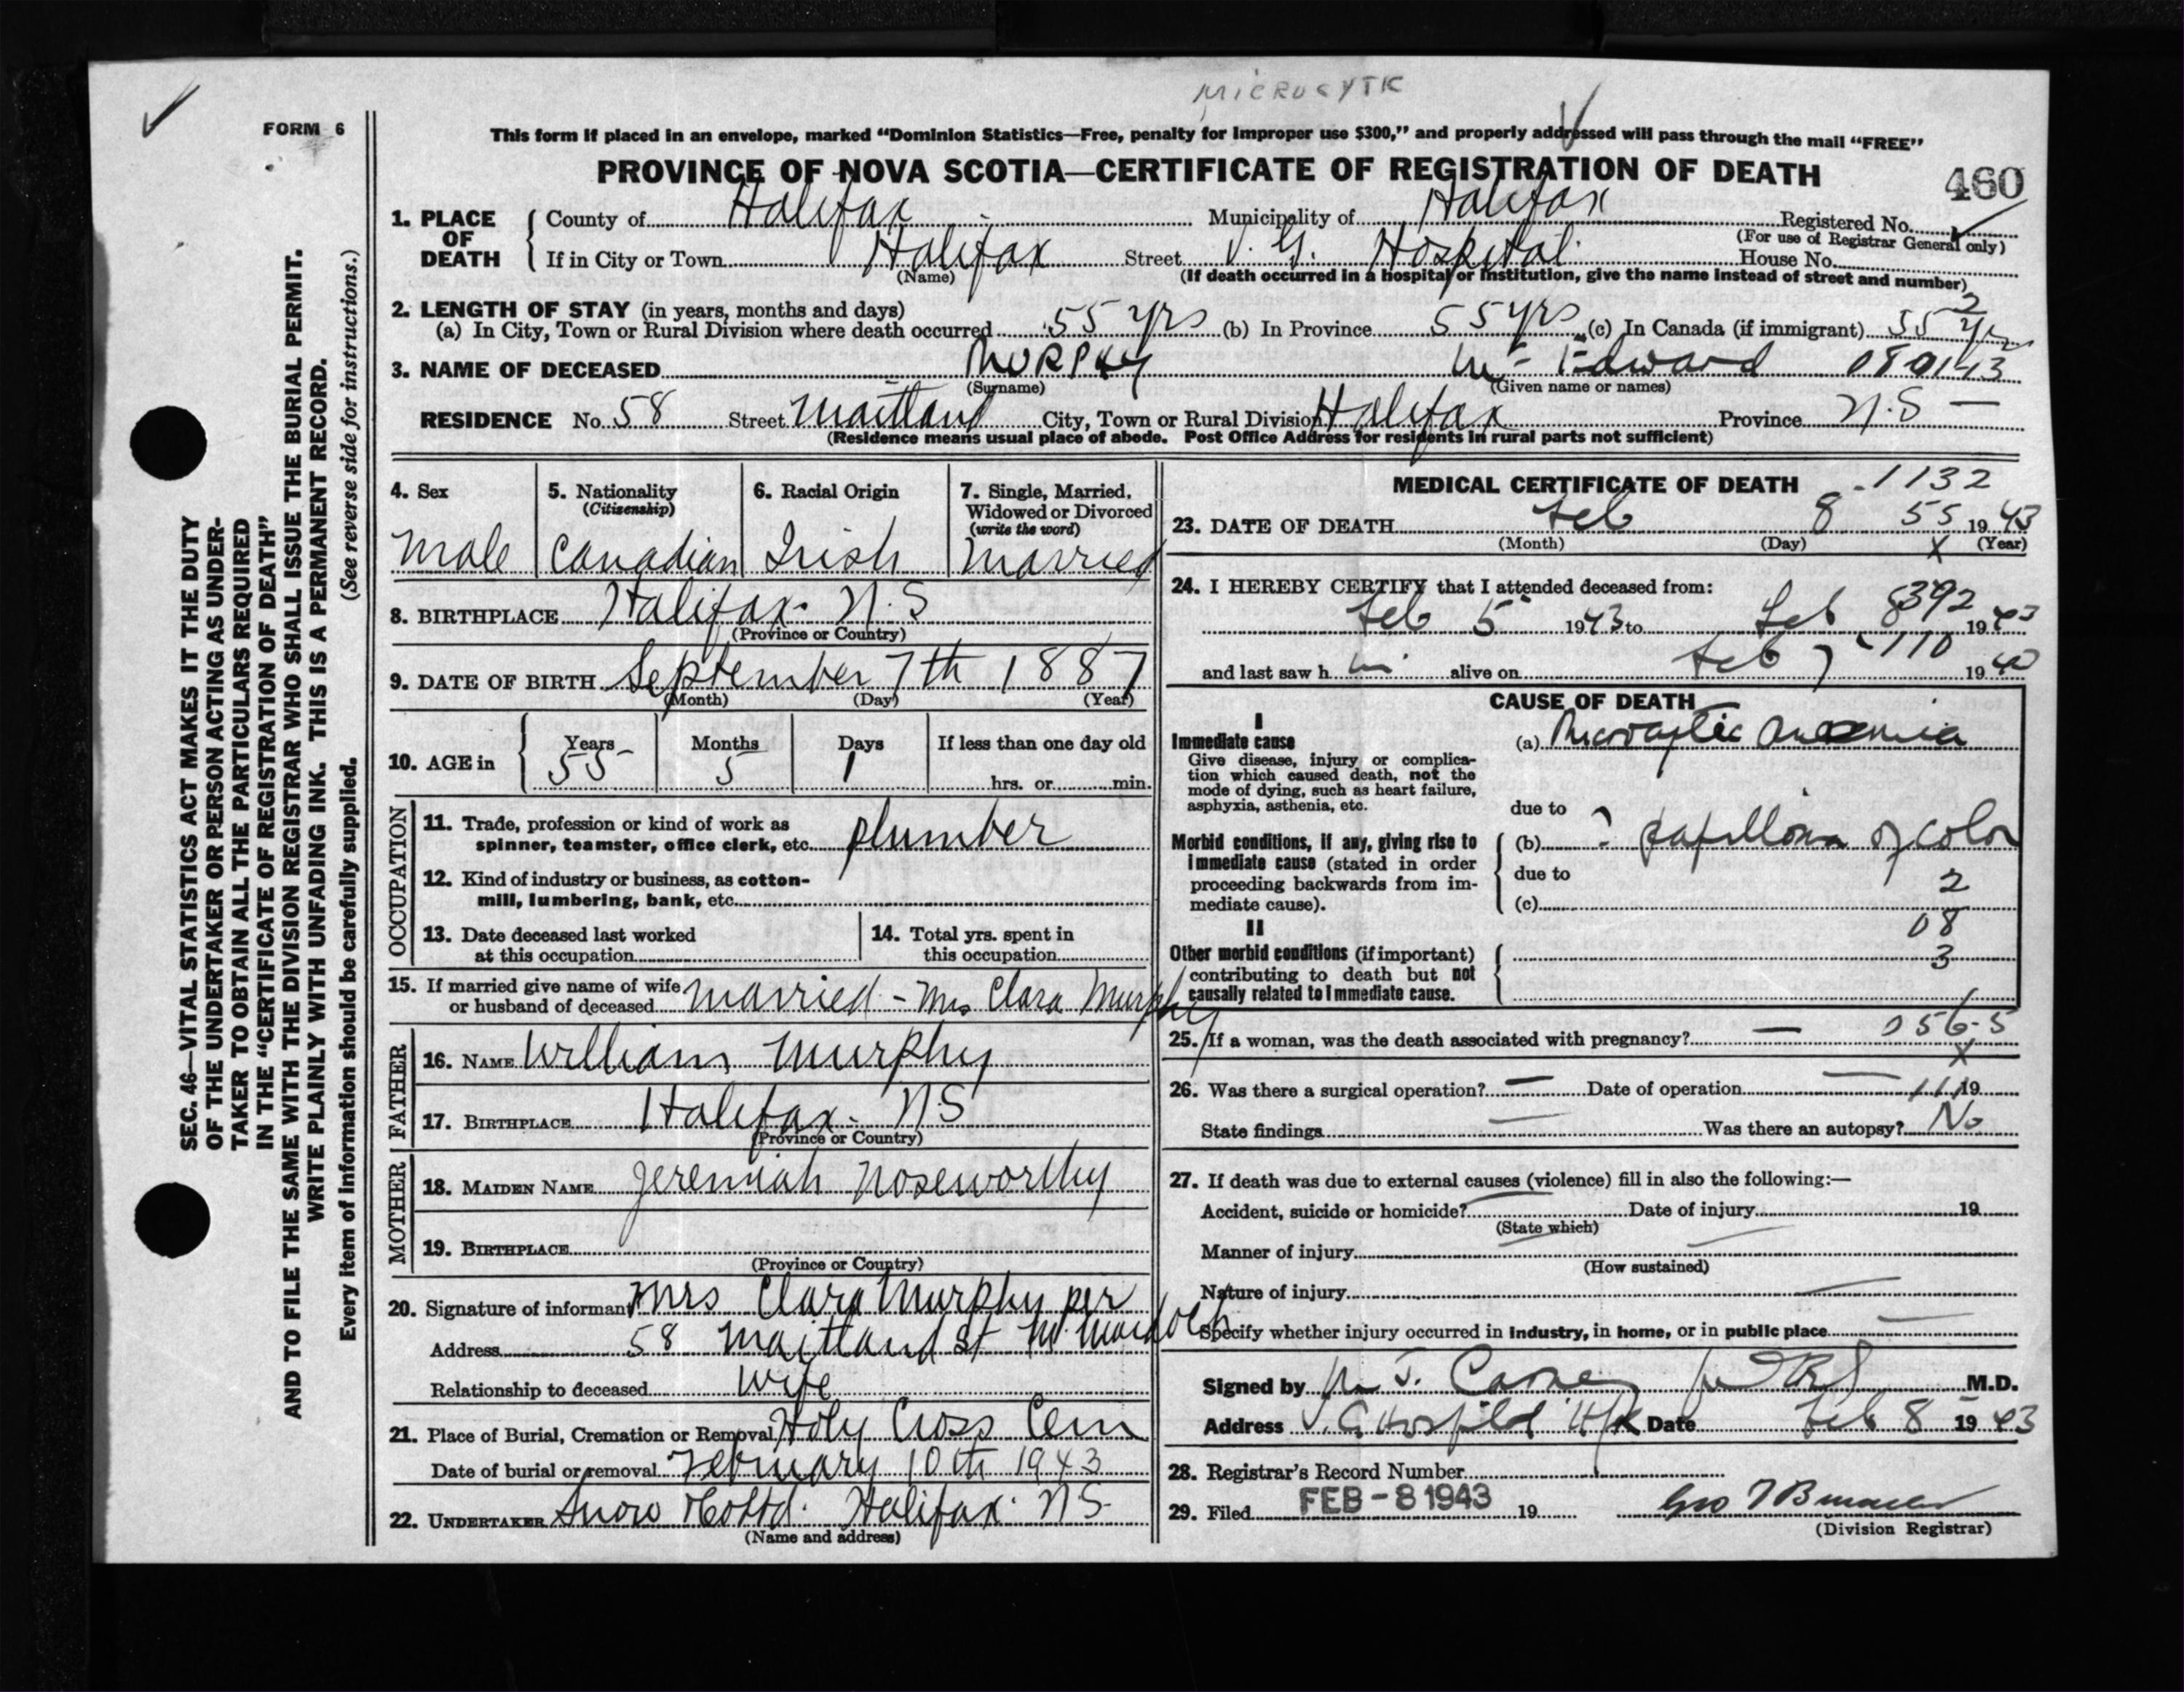 MICROCYTIC
FORM 6
This form if placed in an envelope, marked “Dominion Statistics—Free, penalty for improper use $300,” and properly addressed will pass through the mail “FREE”
PROVINCE OF NOVA SCOTIA—CERTIFICATE OF REGISTRATION OF DEATH
460
1. PLACE OF DEATH County of Halifax Municipality of Halifax Registered No.
(For use of Registrar General only)
If in City or Town Halifax Street V. G. Hospital House No.
(Name) (If death occurred in a hospital or institution, give the name instead of street and number)
2. LENGTH OF STAY (in years, months and days) 2
(a) In City, Town or Rural Division where death occurred 55 yrs (b) In Province 55 yrs (c) In Canada (if immigrant) 55 yrs
3. NAME OF DECEASED MURPHY Wm Edward 080143
(Surname) (Given name or names)
RESIDENCE No. 58 Street Maitland City, Town or Rural Division Halifax Province N.S —
(Residence means usual place of abode. Post Office Address for residents in rural parts not sufficient)
4. Sex 5. Nationality 6. Racial Origin 7. Single, Married,
(Citizenship) Widowed or Divorced
(write the word)
Male Canadian Irish Married
8. BIRTHPLACE Halifax N.S
(Province or Country)
9. DATE OF BIRTH September 7th 1887
(Month) (Day) (Year)
10. AGE in Years Months Days If less than one day old
55 5 1 hrs. or min.
OCCUPATION
11. Trade, profession or kind of work as
spinner, teamster, office clerk, etc. plumber
12. Kind of industry or business, as cotton-
mill, lumbering, bank, etc.
13. Date deceased last worked 14. Total yrs. spent in
at this occupation this occupation
15. If married give name of wife
or husband of deceased married - Mrs Clara Murphy
FATHER
16. NAME William Murphy
17. BIRTHPLACE Halifax N S
(Province or Country)
MOTHER
18. MAIDEN NAME Jeremiah Noseworthy
19. BIRTHPLACE
(Province or Country)
20. Signature of informant Mrs Clara Murphy per
Address 58 Maitland St
Relationship to deceased Wife
21. Place of Burial, Cremation or Removal Holy Cross Cem
Date of burial or removal February 10th 1943
22. UNDERTAKER Snow & Co Ltd. Halifax N S
(Name and address)
MEDICAL CERTIFICATE OF DEATH 1132
23. DATE OF DEATH Feb 8 55 1943
(Month) (Day) X (Year)
24. I HEREBY CERTIFY that I attended deceased from:
392
Feb 5 1943 to Feb 8 1943
110
and last saw h im alive on Feb 7 19 43
CAUSE OF DEATH
I
Immediate cause (a) Microcytic Anaemia
Give disease, injury or complica-
tion which caused death, not the
mode of dying, such as heart failure,
asphyxia, asthenia, etc.
due to
Morbid conditions, if any, giving rise to (b) ? papilloma of colon
immediate cause (stated in order
proceeding backwards from im- due to 2
mediate cause). (c)
II 08
Other morbid conditions (if important) 3
contributing to death but not
causally related to immediate cause.
25. If a woman, was the death associated with pregnancy? — 056-5
X
26. Was there a surgical operation? — Date of operation — 19
State findings — Was there an autopsy? No
27. If death was due to external causes (violence) fill in also the following:—
Accident, suicide or homicide? Date of injury 19
(State which)
Manner of injury
(How sustained)
Nature of injury
Specify whether injury occurred in industry, in home, or in public place
Signed by M.D.
Address V. G. Hospital Hfx Date Feb 8 1943
28. Registrar's Record Number
29. Filed FEB-8 1943 19
(Division Registrar)
SEC. 46—VITAL STATISTICS ACT MAKES IT THE DUTY
OF THE UNDERTAKER OR PERSON ACTING AS UNDER-
TAKER TO OBTAIN ALL THE PARTICULARS REQUIRED
IN THE “CERTIFICATE OF REGISTRATION OF DEATH”
AND TO FILE THE SAME WITH THE DIVISION REGISTRAR WHO SHALL ISSUE THE BURIAL PERMIT.
WRITE PLAINLY WITH UNFADING INK. THIS IS A PERMANENT RECORD.
Every item of information should be carefully supplied. (See reverse side for instructions.)